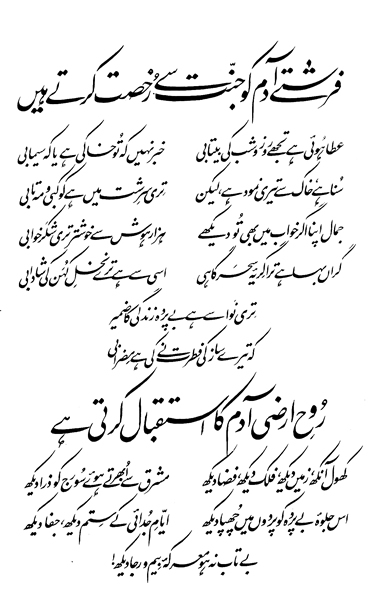 فرشتے آدم کو جنت سے رخصت کرتے ہیں
عطا ہوئی ہے تجھے روز و شب کی بیتابی خبر نہیں کہ تو خاکی ہے یا کہ سیمابی
سنا ہے خاک سے تیری نمود ہے، لیکن تری سرشت میں ہے کوکبی و مہتابی
جمال اپنا اگر خواب میں بھی تو دیکھے ہزار ہوش سے خوشتر تری شکر خوابی
گراں بہا ہے ترا گریۂ سحر گاہی اسی سے ہے ترے نخل کہن کی شادابی
تری نوا سے ہے بے پردہ زندگی کا ضمیر
کہ تیرے ساز کی فطرت نے کی ہے مضرابی
روح ارضی آدم کا استقبال کرتی ہے
کھول آنکھ، زمیں دیکھ، فلک دیکھ، فضا دیکھ مشرق سے ابھرتے ہوئے سورج کو ذرا دیکھ
اس جلوۂ بے پردہ کو پردوں میں چھپا دیکھ ایام جدائی کے ستم دیکھ، جفا دیکھ
بے تاب نہ ہو معرکۂ بیم و رجا دیکھ!